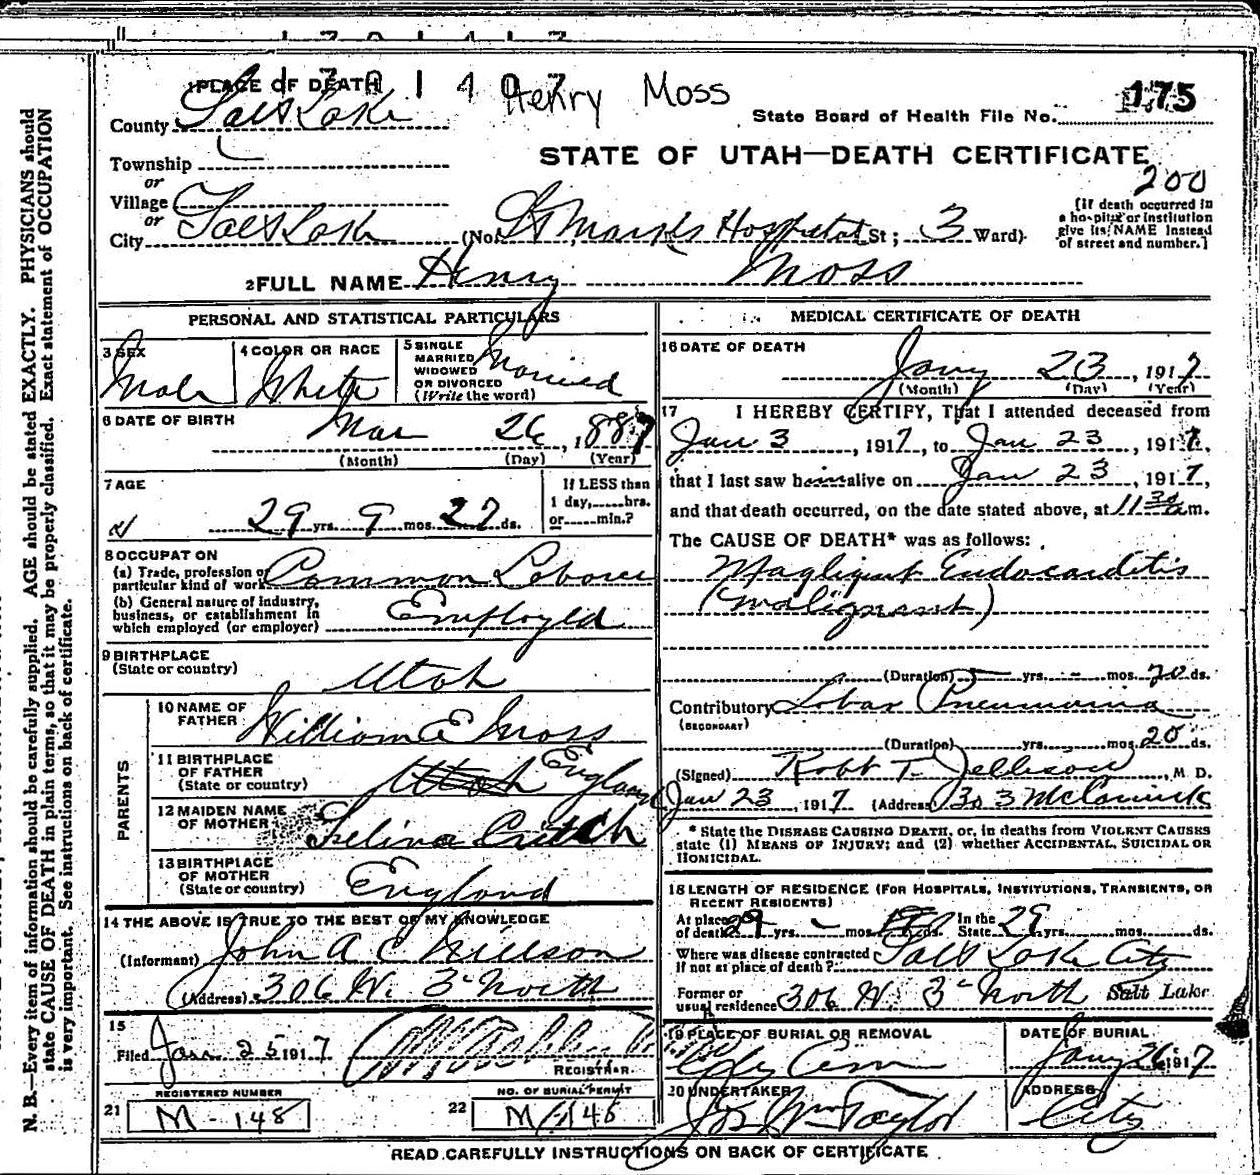 1701407
Henry Moss
175
State Board of Health File No.
STATE OF UTAH—DEATH CERTIFICATE
200
1 PLACE OF DEATH
County Salt Lake
Township
or
Village
or
City Salt Lake (No. St Marks Hospital St; 3 Ward)
[If death occurred in
a hospital or institution
give its NAME instead
of street and number.]
2 FULL NAME Henry Moss
PERSONAL AND STATISTICAL PARTICULARS
3 SEX Male
4 COLOR OR RACE White
5 SINGLE
MARRIED
WIDOWED
OR DIVORCED
(Write the word) Married
6 DATE OF BIRTH Mar 26, 1887
(Month) (Day) (Year)
7 AGE 29 yrs. 9 mos. 27 ds.
If LESS than
1 day, hrs.
or min.?
8 OCCUPATION
(a) Trade, profession or
particular kind of work Common Laborer
(b) General nature of industry,
business, or establishment in
which employed (or employer) Employed
9 BIRTHPLACE
(State or country) Utah
PARENTS
10 NAME OF
FATHER William E Moss
11 BIRTHPLACE
OF FATHER
(State or country) Utah England
12 MAIDEN NAME
OF MOTHER Selina Crutch
13 BIRTHPLACE
OF MOTHER
(State or country) England
14 THE ABOVE IS TRUE TO THE BEST OF MY KNOWLEDGE
(Informant) John A C
(Address) 306 W. 3d North
15
Filed Jan 25 1917
REGISTRAR.
REGISTERED NUMBER
21 M-148
NO. OF BURIAL PERMIT
22 M 145
MEDICAL CERTIFICATE OF DEATH
16 DATE OF DEATH
Jany 23, 1917
(Month) (Day) (Year)
17 I HEREBY CERTIFY, That I attended deceased from
Jan 3, 1917, to Jan 23, 1917,
that I last saw him alive on Jan 23 1917,
and that death occurred, on the date stated above, at 11 30 a m.
The CAUSE OF DEATH* was as follows:
Magliginant Endocarditis
(malignant)
(Duration) yrs. mos. 20 ds.
Contributory Lobar Pneumonia
(SECONDARY)
(Duration) yrs. mos. 20 ds.
(Signed) Robt T. Jellison, M D.
Jan 23, 1917 (Address) 303 McCornick
* State the DISEASE CAUSING DEATH, or, in deaths from VIOLENT CAUSES
state (1) MEANS OF INJURY; and (2) whether ACCIDENTAL, SUICIDAL OR
HOMICIDAL.
18 LENGTH OF RESIDENCE (FOR HOSPITALS, INSTITUTIONS, TRANSIENTS, OR
RECENT RESIDENTS)
At place
of death 29 yrs. - mos. ds. In the
State 29 yrs. mos. ds.
Where was disease contracted
if not at place of death? Salt Lake City
Former or
usual residence 306 W. 3d North Salt Lake
19 PLACE OF BURIAL OR REMOVAL
City Cem
DATE OF BURIAL
Jany 26 1917
20 UNDERTAKER
Jos Wm Taylor
ADDRESS
City
READ CAREFULLY INSTRUCTIONS ON BACK OF CERTIFICATE
N. B.—Every item of information should be carefully supplied. AGE should be stated EXACTLY. PHYSICIANS should
state CAUSE OF DEATH in plain terms, so that it may be properly classified. Exact statement of OCCUPATION
is very important. See instructions on back of certificate.